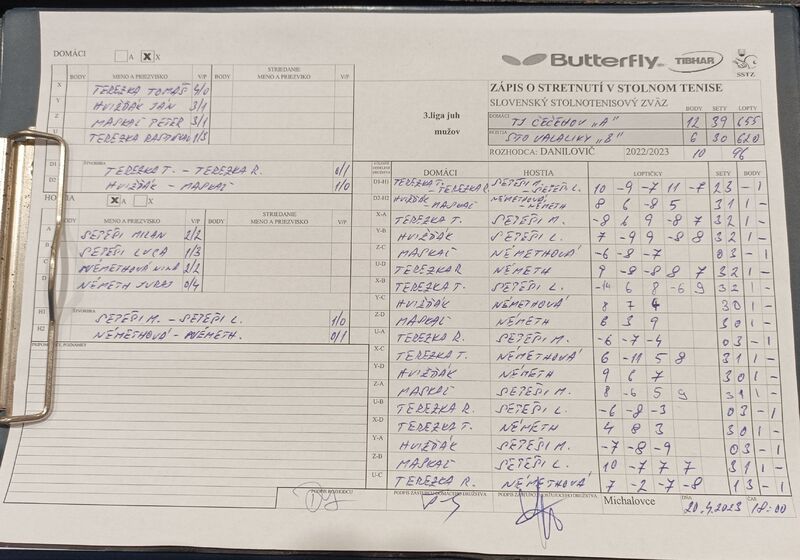 DOMÁCI A X X
Butterfly TIBHAR SSTZ
STRIEDANIE
BODY MENO A PRIEZVISKO V/P BODY MENO A PRIEZVISKO V/P
X TEREZKA TOMÁŠ 4/0
Y HVIŽĎÁK JÁN 3/1
Z MASKAĽ PETER 3/1
U 1/3
ZÁPIS O STRETNUTÍ V STOLNOM TENISE
SLOVENSKÝ STOLNOTENISOVÝ ZVÄZ
3.liga juh
mužov
BODY SETY LOPTY
DOMÁCI TJ ČEČEHOV "A" 12 39 655
HOSTIA STO VALALIKY "B" 6 30 620
ROZHODCA: DANILOVIČ 2022/2023 10 96
D1 ŠTVORHRA TEREZKA T. - TEREZKA R. 0/1
D2 HVIŽĎÁK - MASKAĽ 1/0
HOSTIA A X X
STRIEDANIE
BODY MENO A PRIEZVISKO V/P BODY MENO A PRIEZVISKO V/P
A SETÉŠI MILAN 2/2
B SETÉŠI LUCA 1/3
C NÉMETHOVÁ NINA 2/2
D NÉMETH JURAJ 0/4
H1 ŠTVORHRA SETÉŠI M. - SETÉŠI L. 1/0
H2 NÉMETHOVÁ - NÉMETH. 0/1
PRIPOMIENKY, POZNÁMKY
DOMÁCI HOSTIA LOPTIČKY SETY BODY
D1-H1 TEREZKA T. - TEREZKA R. SETÉŠI M. - SETÉŠI L. 10 -9 -7 11 -7 2 3 - 1
D2-H2 HVIŽĎÁK - MASKAĽ NÉMETHOVÁ - NÉMETH 8 6 -8 5 3 1 1 -
X-A TEREZKA T. SETÉŠI M. -8 6 9 -8 7 3 2 1 -
Y-B HVIŽĎÁK SETÉŠI L. 7 -9 9 -8 8 3 2 1 -
Z-C MASKAĽ NÉMETHOVÁ -6 -8 -7 0 3 - 1
U-D TEREZKA R. NÉMETH 9 -8 -8 8 7 3 2 1 -
X-B TEREZKA T. SETÉŠI L. -14 6 8 -6 9 3 2 1 -
Y-C HVIŽĎÁK NÉMETHOVÁ 8 7 4 3 0 1 -
Z-D MASKAĽ NÉMETH 8 3 9 3 0 1 -
U-A TEREZKA R. SETÉŠI M. -6 -7 -4 0 3 - 1
X-C TEREZKA T. NÉMETHOVÁ 6 -11 5 8 3 1 1 -
Y-D HVIŽĎÁK NÉMETH 9 6 7 3 0 1 -
Z-A MASKAĽ SETÉŠI M. 8 -6 5 9 3 1 1 -
U-B TEREZKA R. SETÉŠI L. -6 -8 -3 0 3 - 1
X-D TEREZKA T. NÉMETH 4 8 3 3 0 1 -
Y-A HVIŽĎÁK SETÉŠI M. -7 -8 -9 0 3 - 1
Z-B MASKAĽ SETÉŠI L. 10 -7 7 7 3 1 1 -
U-C TEREZKA R. NÉMETHOVÁ 7 -2 -7 -8 1 3 - 1
PODPIS ROZHODCU PODPIS ZÁSTUPCU DOMÁCEHO DRUŽSTVA PODPIS ZÁSTUPCU HOSŤUJÚCEHO DRUŽSTVA Michalovce DŇA 20.4.2023 ČAS 18:00